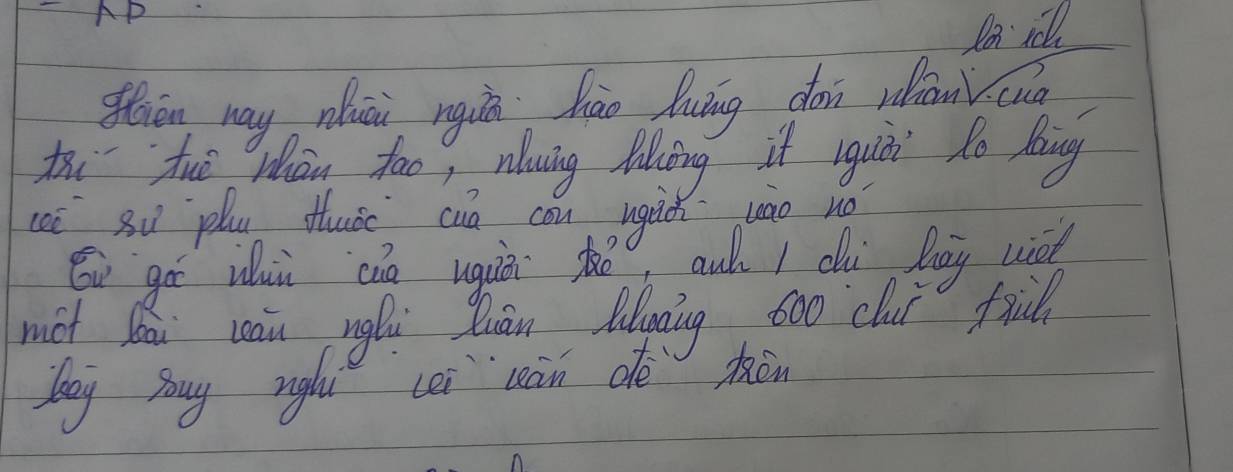 lợi ích
Hiện nay nhiều người hào hứng đón nhận của
trí tuệ nhân tạo, nhưng không ít người lo lắng
về sự phụ thuộc của con người vào nó
Từ góc nhìn của người trẻ, anh / chị hãy viết
một bài văn nghị luận khoảng 600 chữ trình
bày suy nghĩ về vấn đề trên